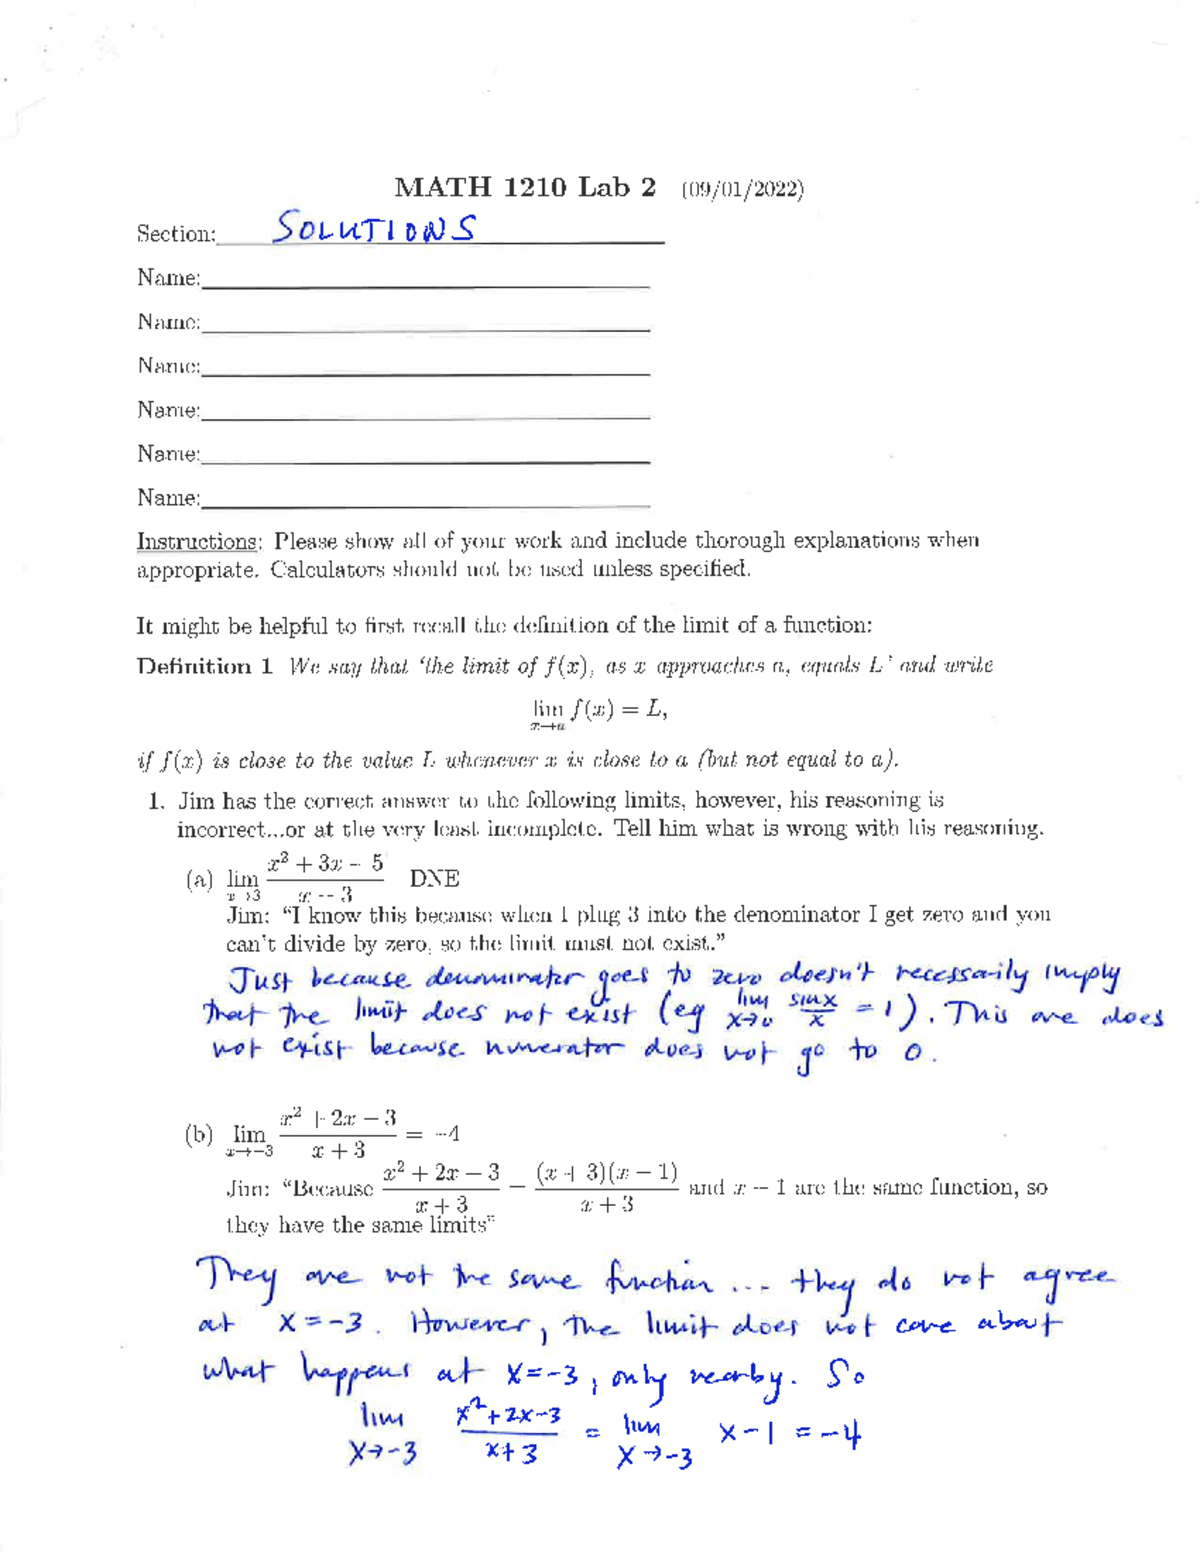 MATH 1210 Lab 2 (09/01/2022)
Section: SOLUTIONS
Name:
Name:
Name:
Name:
Name:
Name:
Instructions: Please show all of your work and include thorough explanations when
appropriate. Calculators should not be used unless specified.
It might be helpful to first recall the definition of the limit of a function:
Definition 1 We say that 'the limit of f(x), as x approaches a, equals L' and write
lim x→a f(x) = L,
if f(x) is close to the value L whenever x is close to a (but not equal to a).
1. Jim has the correct answer to the following limits, however, his reasoning is
incorrect...or at the very least incomplete. Tell him what is wrong with his reasoning.
(a) lim x→3 (x² + 3x − 5)/(x − 3) DNE
Jim: "I know this because when I plug 3 into the denominator I get zero and you
can't divide by zero, so the limit must not exist."
Just because denominator goes to zero doesn't necessarily imply
that the limit does not exist (eg lim x→0 sinx/x = 1). This one does
not exist because numerator does not go to 0.
(b) lim x→−3 (x² + 2x − 3)/(x + 3) = −4
Jim: "Because (x² + 2x − 3)/(x + 3) = (x + 3)(x − 1)/(x + 3) and x − 1 are the same function, so
they have the same limits"
They are not the same function ... they do not agree
at x = -3. However, the limit does not care about
what happens at x = -3, only nearby. So
lim x→-3 (x²+2x-3)/(x+3) = lim x→-3 x-1 = -4